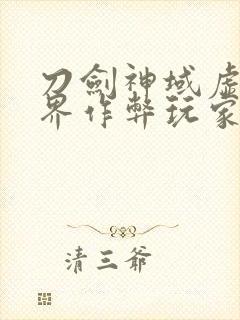 刀劍神域虛
界作弊玩家
清三爺